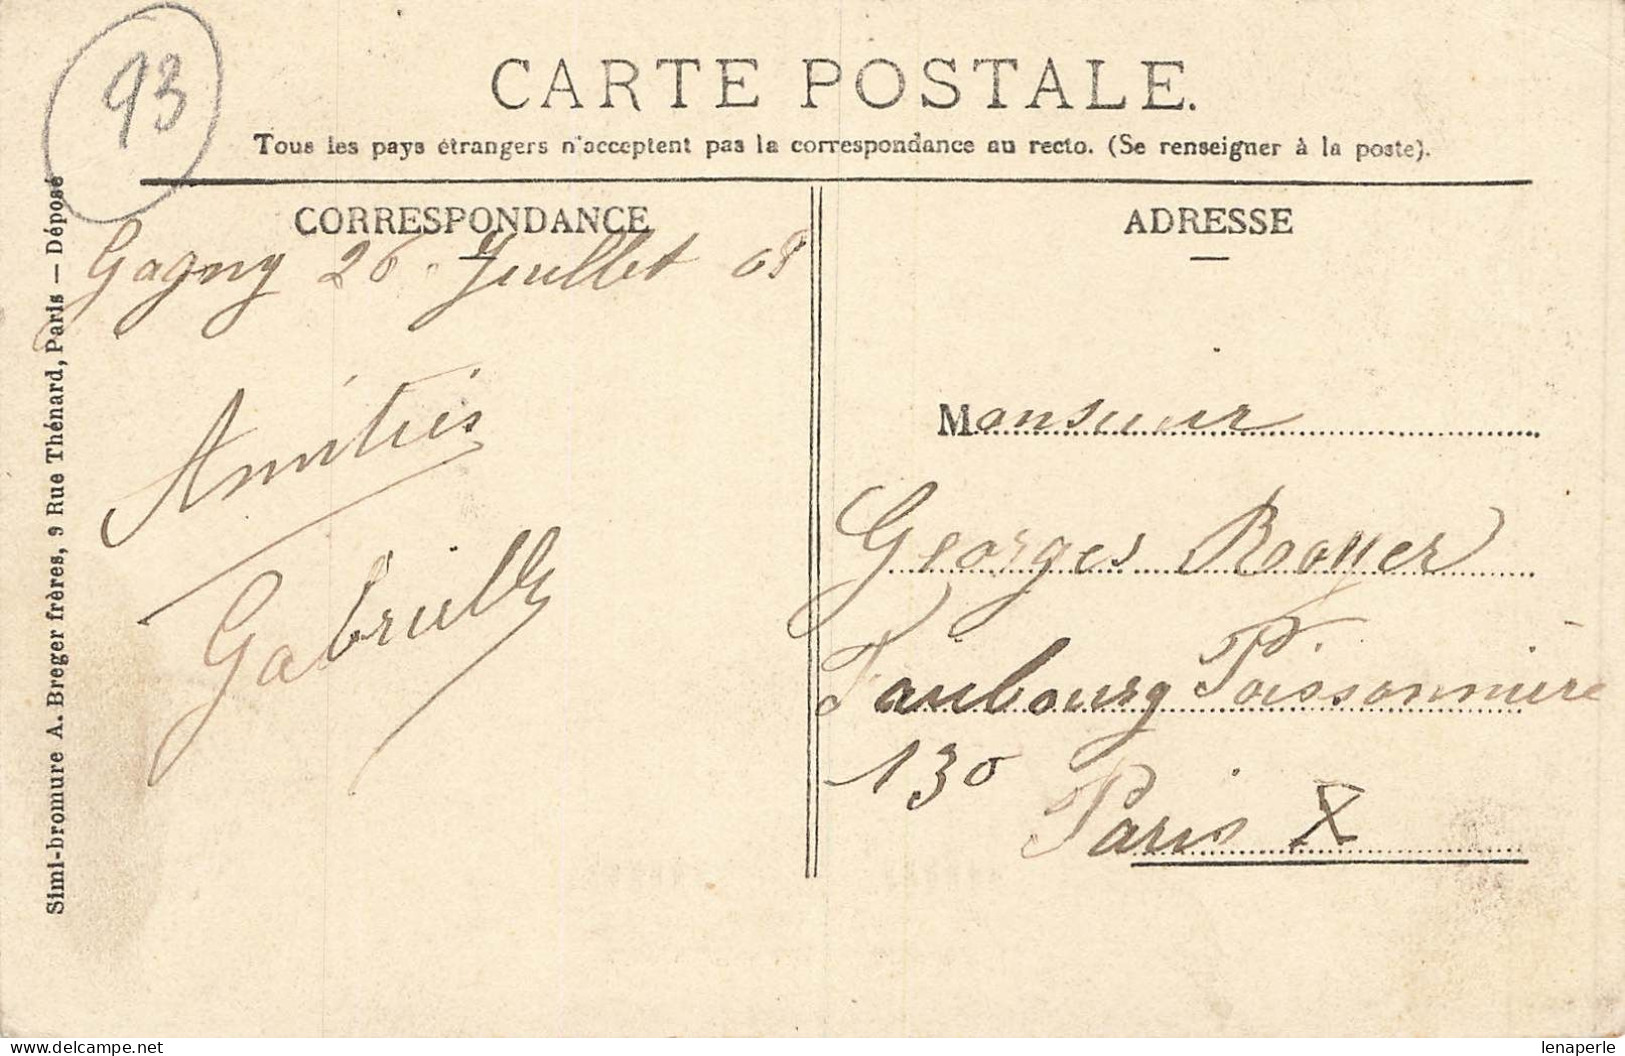 93
CARTE POSTALE.
Tous les pays étrangers n'acceptent pas la correspondance au recto. (Se renseigner à la poste).
CORRESPONDANCE
Gagny 26 Juillet 08
Amitiés
Gabrielle
ADRESSE
Monsieur
Georges Royer
Faubourg Poissonnière
130
Paris X
Simi-bromure A. Breger frères, 9 Rue Thénard, Paris — Déposé
delcampe.net
lenaperle